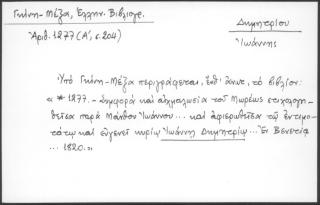 Γκίνη-Μέξα, Ἑλλην. Βιβλιογρ.
Ἀριθ. 1277 (Α', σ. 204)
Δημητρίου
Ἰωάννης
Ὑπὸ Γκίνη-Μέξα περιγράφεται, ἔνθ' ἄνωτ., τὸ βιβλίον:
« * 1277. - Συμφορὰ καὶ αἰχμαλωσία τοῦ Μωρέως στιχολογη-
θεῖσα παρὰ Μάνθου Ἰωάννου... καὶ ἀφιερωθεῖσα τῷ ἐντιμο-
τάτῳ καὶ εὐγενεῖ κυρίῳ Ἰωάννῃ Δημητρίῳ... Ἐν Βενετίᾳ
... 1820. »